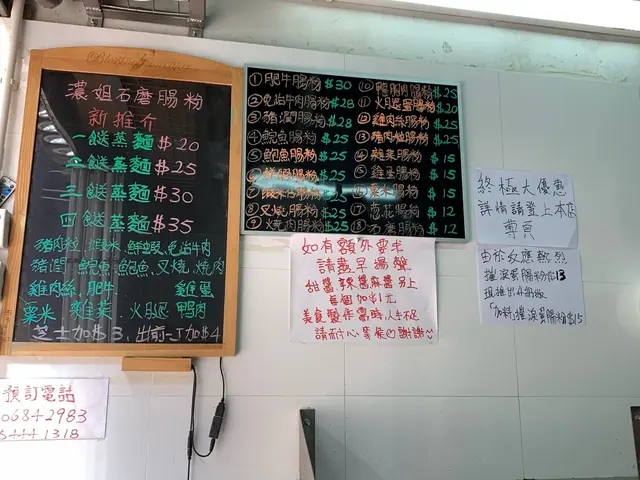 濃姐石磨腸粉
新推介
一餸蒸麵$20
二餸蒸麵$25
三餸蒸麵$30
四餸蒸麵$35
豬肉粒,蝦米,鮮蝦,免治牛肉
豬潤,鯇魚,鮑魚,叉燒,燒肉
雞肉絲,肥牛 雞蛋
粟米 雜菜,火腿 鴨肉
芝士加$3,出前一丁加$4
預訂電話
06842983
5444 1318
①肥牛腸粉$30
②免治牛肉腸粉$28
③豬潤腸粉$28
④鯇魚腸粉$25
⑤鮑魚腸粉$25
⑥鮮蝦腸粉$25
$25
⑧叉燒腸粉$25
⑨燒肉腸粉$25
⑩鴨肉腸粉$25
⑪火腿蛋腸粉$20
⑫雞肉絲腸粉$25
⑬豬肉粒腸粉$25
⑭雜菜腸粉$15
⑮雞蛋腸粉$15
腸粉$15
⑰蔥花腸粉$12
⑱石磨腸粉$12
如有額外要求
請盡早揚聲
甜醬辣醬麻醬另上
每個加$1元
美食製作需時,人手不足
請耐心等候 謝謝
終極大優惠
詳情請登上本店
專頁
由於反應熱烈
腸粉$13
現推出升級版
腸粉$15